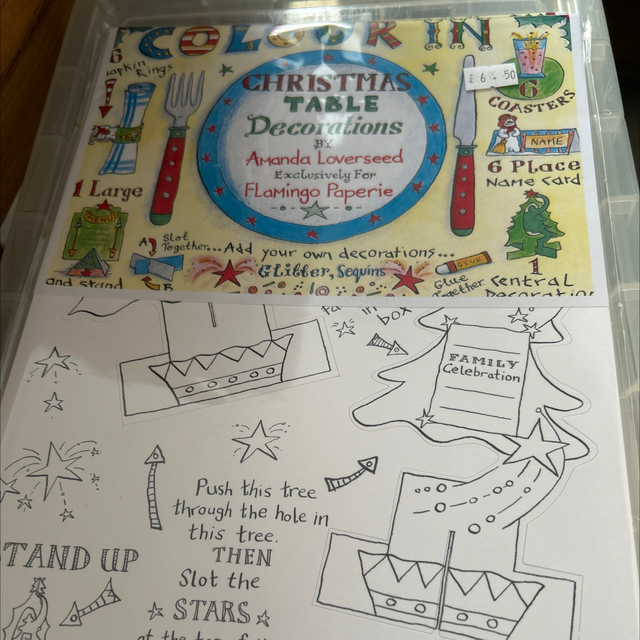 COLOUR IN
6
Napkin Rings
CHRISTMAS
TABLE
Decorations
BY
Amanda Loverseed
Exclusively For
Flamingo Paperie
£6.50
6
COASTERS
NAME
6 Place
Name Card
1 Large
MENU
and stand
A
Slot
Together...
B
Add your own decorations...
Glitter, Sequins
GLUE
Glue
Together
1
Central
Decoration
in
box
FAMILY
Celebration
Push this tree
through the hole in
this tree.
THEN
Slot the
STARS
at the top of
STAND UP